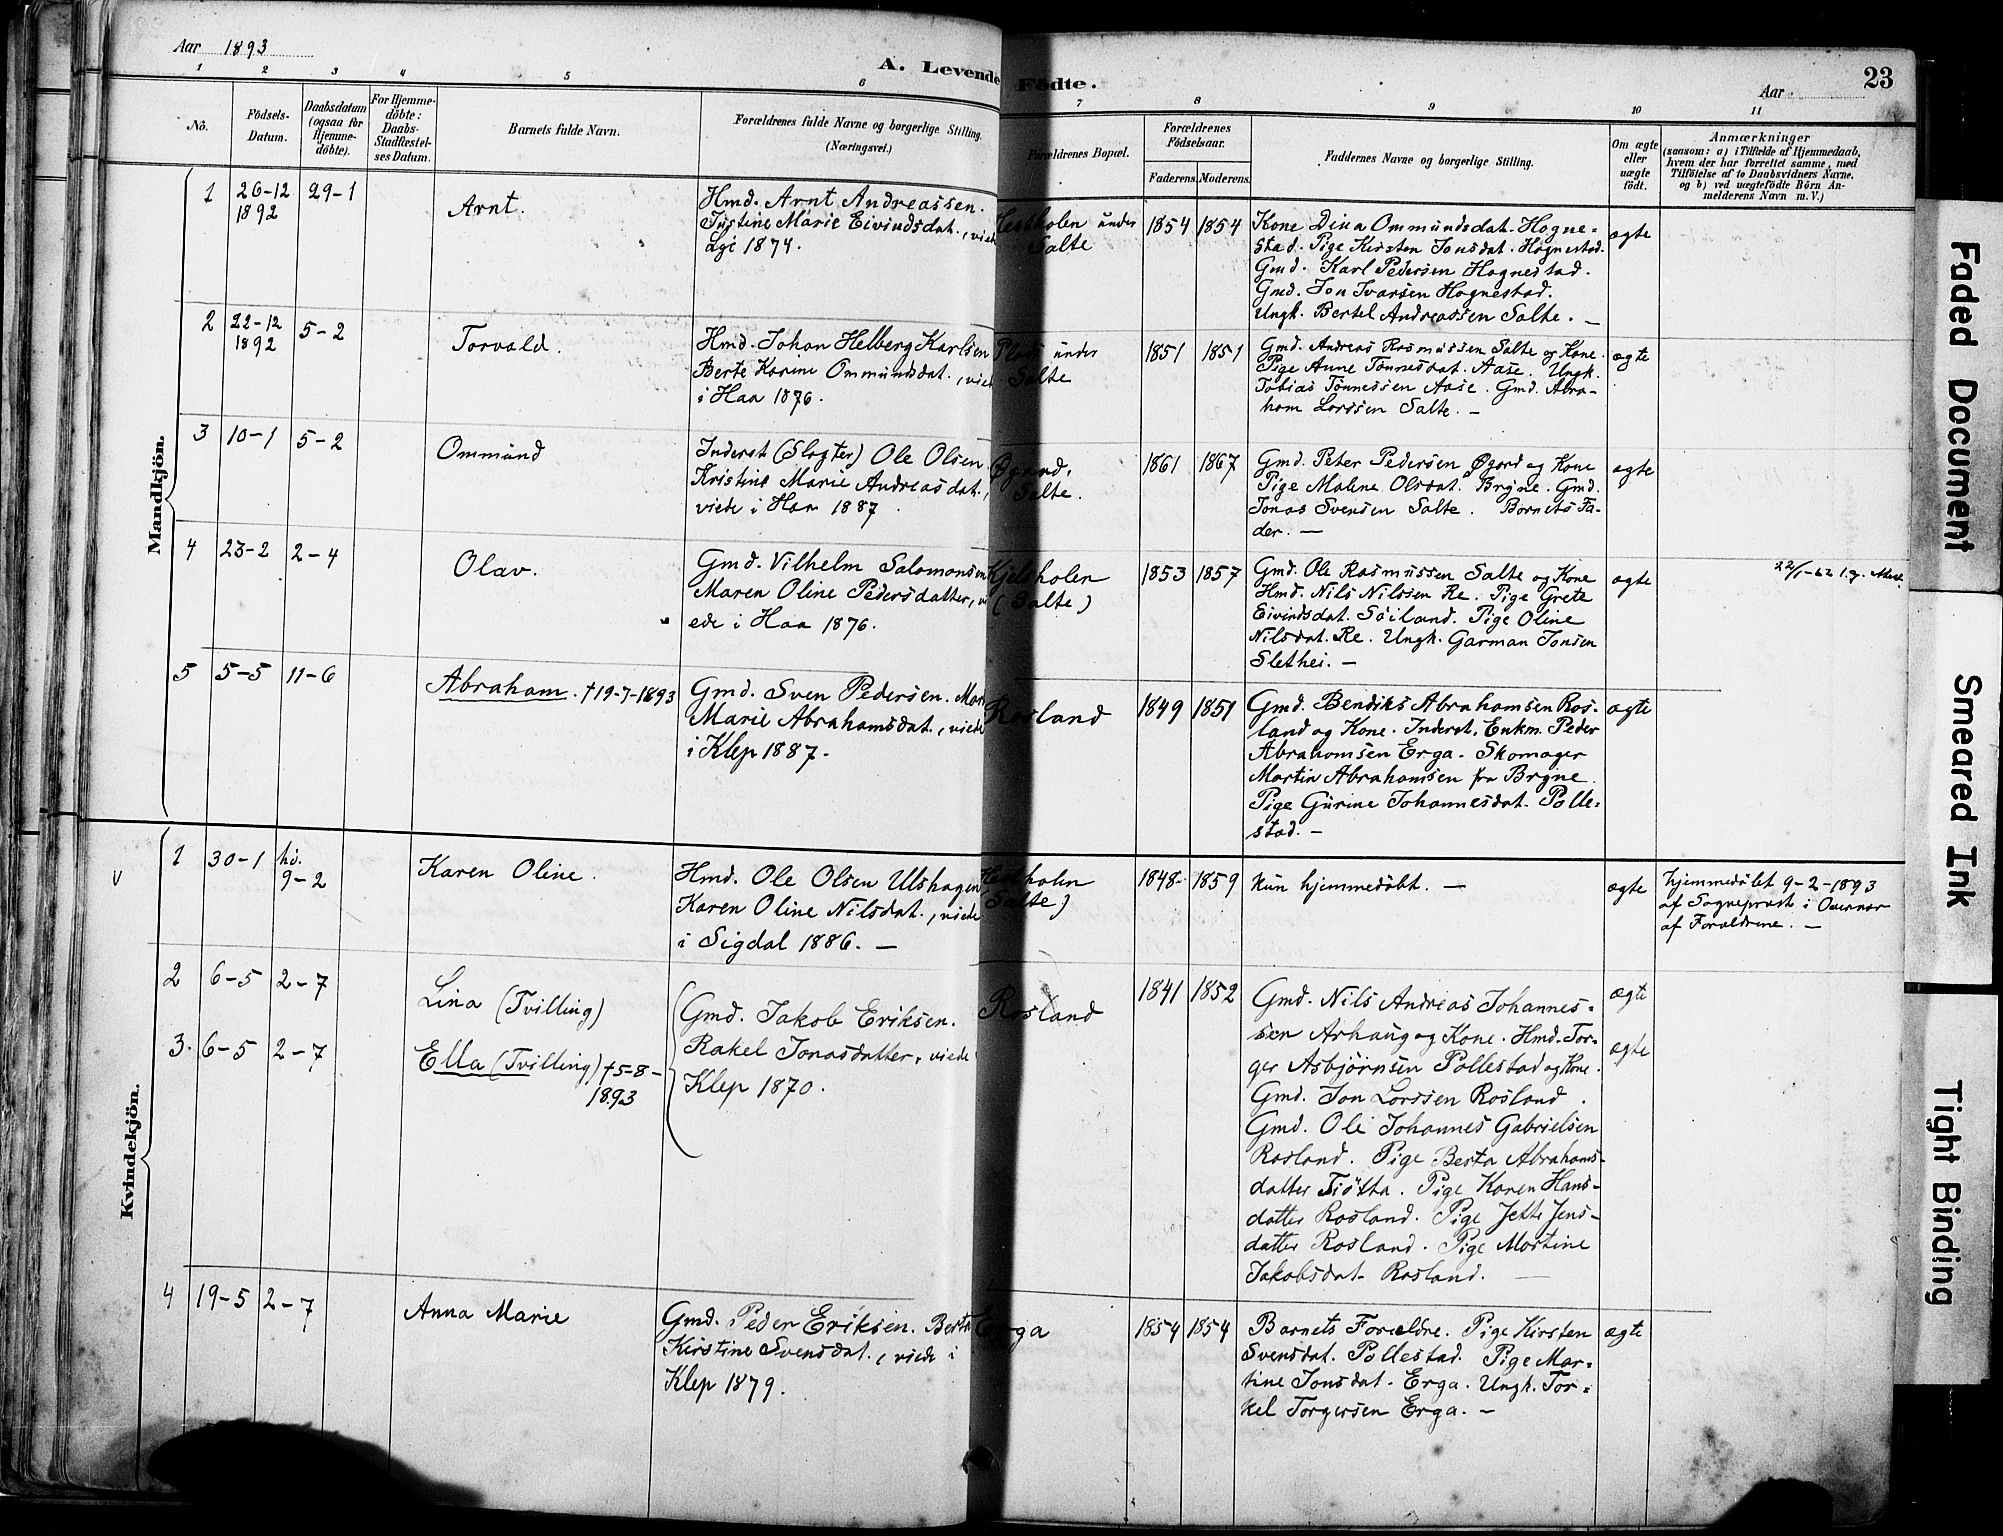 Aar 1893
A. Levende Födte.
Aar
23
1 2 3 4 5 6 7 8 9 10 11
No.
Födsels-
Datum.
Daabsdatum
(ogsaa for
Hjemme-
döbte).
For Hjemme-
döbte:
Daabs-
Stadfæstel-
ses Datum.
Barnets fulde Navn.
Forældrenes fulde Navne og borgerlige Stilling.
(Næringsvei.)
Forældrenes Bopæl.
Forældrenes
Födselsaar.
Faderens. Moderens.
Faddernes Navne og borgerlige Stilling.
Om ægte
eller
uægte
födt.
Anmærkninger
(saasom: a) i Tilfælde af Hjemmedaab,
hvem der har forrettet samme, med
Tilföielse af to Daabsvidners Navne,
og b) ved uægtefödte Börn An-
melderens Navn m. V.)
Mandkjön.
1
26-12
1892
29-1
Arnt.
Hmd. Arnt Andreassen.
Justine Marie Eivindsdat., viede
Lye 1874.
Hestholen under
Salte
1854 1854
Kone Dina Ommundsdat. Hogne-
stad. Pige Kirsten Jonsdat. Hognestad.
Gmd. Karl Pedersen Hognestad.
Gmd. Jon Ivarsen Hognestad.
Ungk. Bertel Andreassen Salte. —
ægte
2
22-12
1892
5-2
Torvald.
Hmd. Johan Helberg Karlsen
Berte Karine Ommundsdat., viede
i Haa 1876.
Plads under
Salte
1851 1851
Gmd. Andreas Rasmussen Salte og Kone.
Pige Anne Tönnesdat. Aase. Ungk.
Tobias Tönnessen Aase. Gmd. Abra-
ham Larssen Salte. —
ægte
3
10-1
5-2
Ommund
Inderst (Slagter) Ole Olsen
Kristine Marie Andreasdat.,
viede i Haa 1887.
Salte.
1861 1867
Gmd. Peter Pedersen Øgard og Kone
Pige Malene Olsdat. Bryne. Gmd.
Jonas Svensen Salte. Barnets Fa-
der. —
ægte
4
23-2
2-4
Olav.
Gmd. Vilhelm Salomonsen
Maren Oline Pedersdatter, vi-
ede i Haa 1876.
Kjelsholen
(Salte)
1853 1857
Gmd. Ole Rasmussen Salte og Kone
Hmd. Nils Nilssen Re. Pige Grete
Eivindsdat. Söiland. Pige Oline
Nilsdat. Re. Ungk. Garman Jonsen
Slethei. —
ægte
22/1-62 l.g. Attest.
5
5-5
11-6
Abraham. †19-7-1893
Gmd. Sven Pedersen.
Marie Abrahamsdat., viede
i Klep 1887.
Rosland
1849 1851
Gmd. Bendiks Abrahamsen Ros-
land og Kone. Inderst, Enkm. Peder
Abrahamsen Erga. Skomager
Martin Abrahamsen fra Bryne.
Pige Gurine Johannesdat. Polle-
stad. —
ægte
Kvindekjön.
V
1
30-1
hd.
9-2
Karen Oline.
Hmd. Ole Olsen Ulshagen
Karen Oline Nilsdat., viede
i Sigdal 1886. —
Hestholen
(Salte)
1848 1859
Kun hjemmedöbt. —
ægte
hjemmedöbt 9-2-1893
af Sogneprest i Overvær
af Forældrene. —
2
6-5
2-7
Lina (Tvilling)
3.
6-5
2-7
Ella (Tvilling) †5-8-
1893
Gmd. Jakob Eriksen.
Rakel Jonasdatter, viede
Klep 1870.
Rosland
1841 1852
Gmd. Nils Andreas Johannes-
sen Arhaug og Kone. Hmd. Tor-
ger Asbjörnsen Pollestad og Kone.
Gmd. Jon Larssen Rosland.
Gmd. Ole Johannes Gabrielsen
Rosland. Pige Berta Abrahams-
datter Tjötta. Pige Karen Hans-
datter Rosland. Pige Jette Jens-
datter Rosland. Pige Martine
Jakobsdat. Rosland. —
ægte
ægte
4
19-5
2-7
Anna Marie
Gmd. Peder Eriksen. Berta
Kirstine Svensdat., viede i
Klep 1879.
Erga
1854 1854
Barnets Forældre. Pige Kirsten
Svensdat. Pollestad. Pige Mar-
tine Jonsdat. Erga. Ungk. Tor-
kel Torgersen Erga. —
ægte
Faded Document
Smeared Ink
Tight Binding